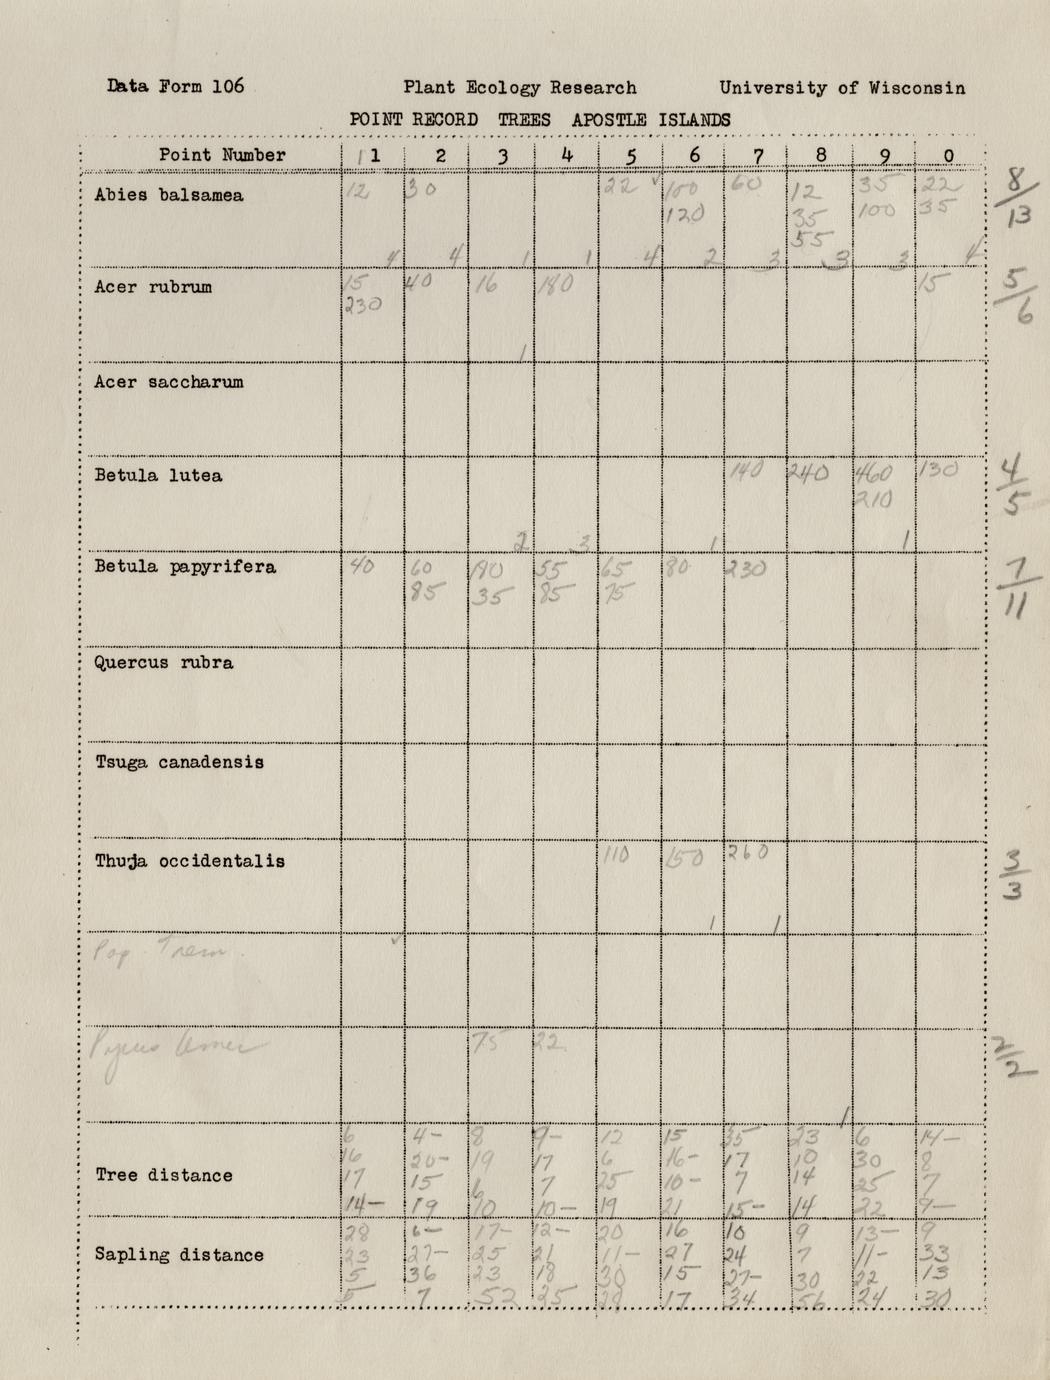 Data Form 106 Plant Ecology Research University of Wisconsin
POINT RECORD TREES APOSTLE ISLANDS
Point Number 1 2 3 4 5 6 7 8 9 0
Abies balsamea 12 30 22 ✓ 100 60 12 35 22 8/13
120 35 100 35
55
4 4 1 1 4 2 3 3 3 4
Acer rubrum 15 40 16 180 15 5/6
230
1
Acer saccharum
Betula lutea 140 240 460 130 4/5
210
2 3 1 1
Betula papyrifera 40 60 190 55 65 80 230 7/11
85 35 85 75
Quercus rubra
Tsuga canadensis
Thuja occidentalis 110 150 260 3/3
1 1
Pop. Trem. ✓
Pyrus Amer 75 22 2/2
1
6 4- 8 9- 12 15 35 23 6 14-
16 20- 19 17 6 16- 17 10 30 8
Tree distance 17 15 6 7 25 10- 7 14 25 7
14- 19 10 10- 19 21 15- 14 22 9-
28 6- 17- 12- 20 16 10 9 13- 9
Sapling distance 23 27- 25 21 11- 27 24 7 11- 33
5 36 23 18 30 15 27- 30 22 13
5 7 52 25 28 17 34 56 24 30